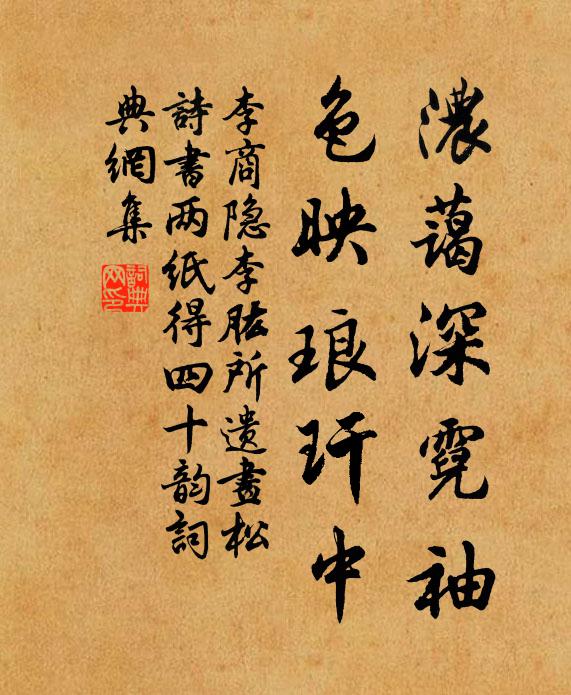 濃藹深霓袖
色映琅玕中
李商隐李肱所遺畫松
詩書两紙得四十韵詞
典網集
詞典网印